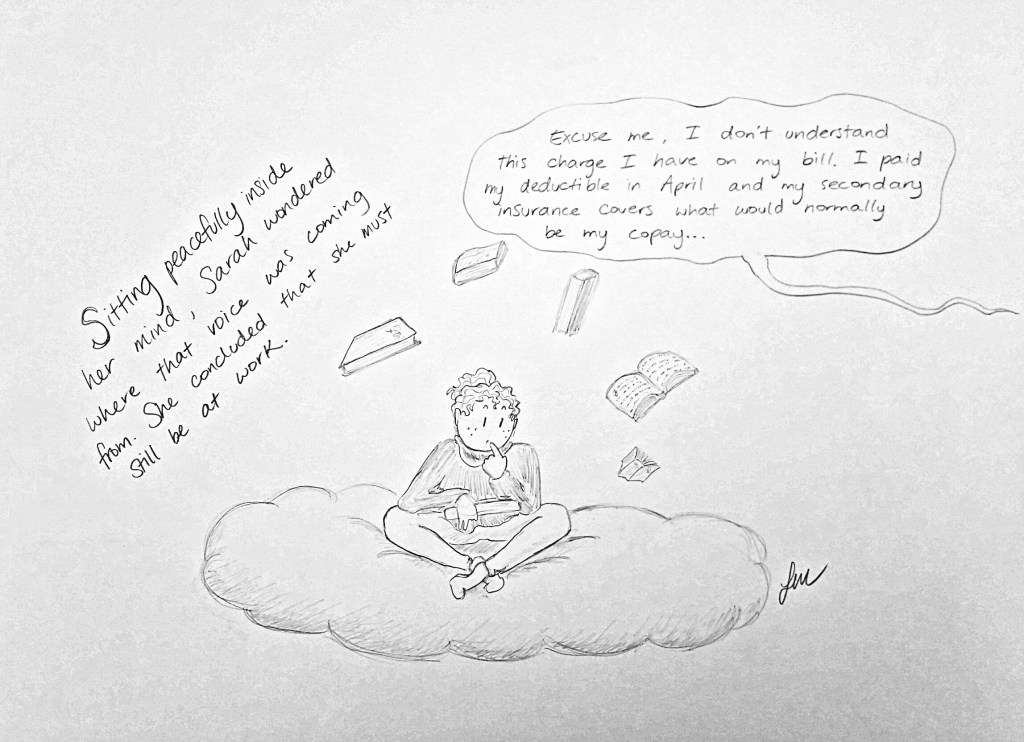 Sitting peacefully inside
her mind, Sarah wondered
where that voice was coming
from. She concluded that she must
still be at work.
Excuse me, I don't understand
this charge I have on my bill. I paid
my deductible in April and my secondary
insurance covers what would normally
be my copay...